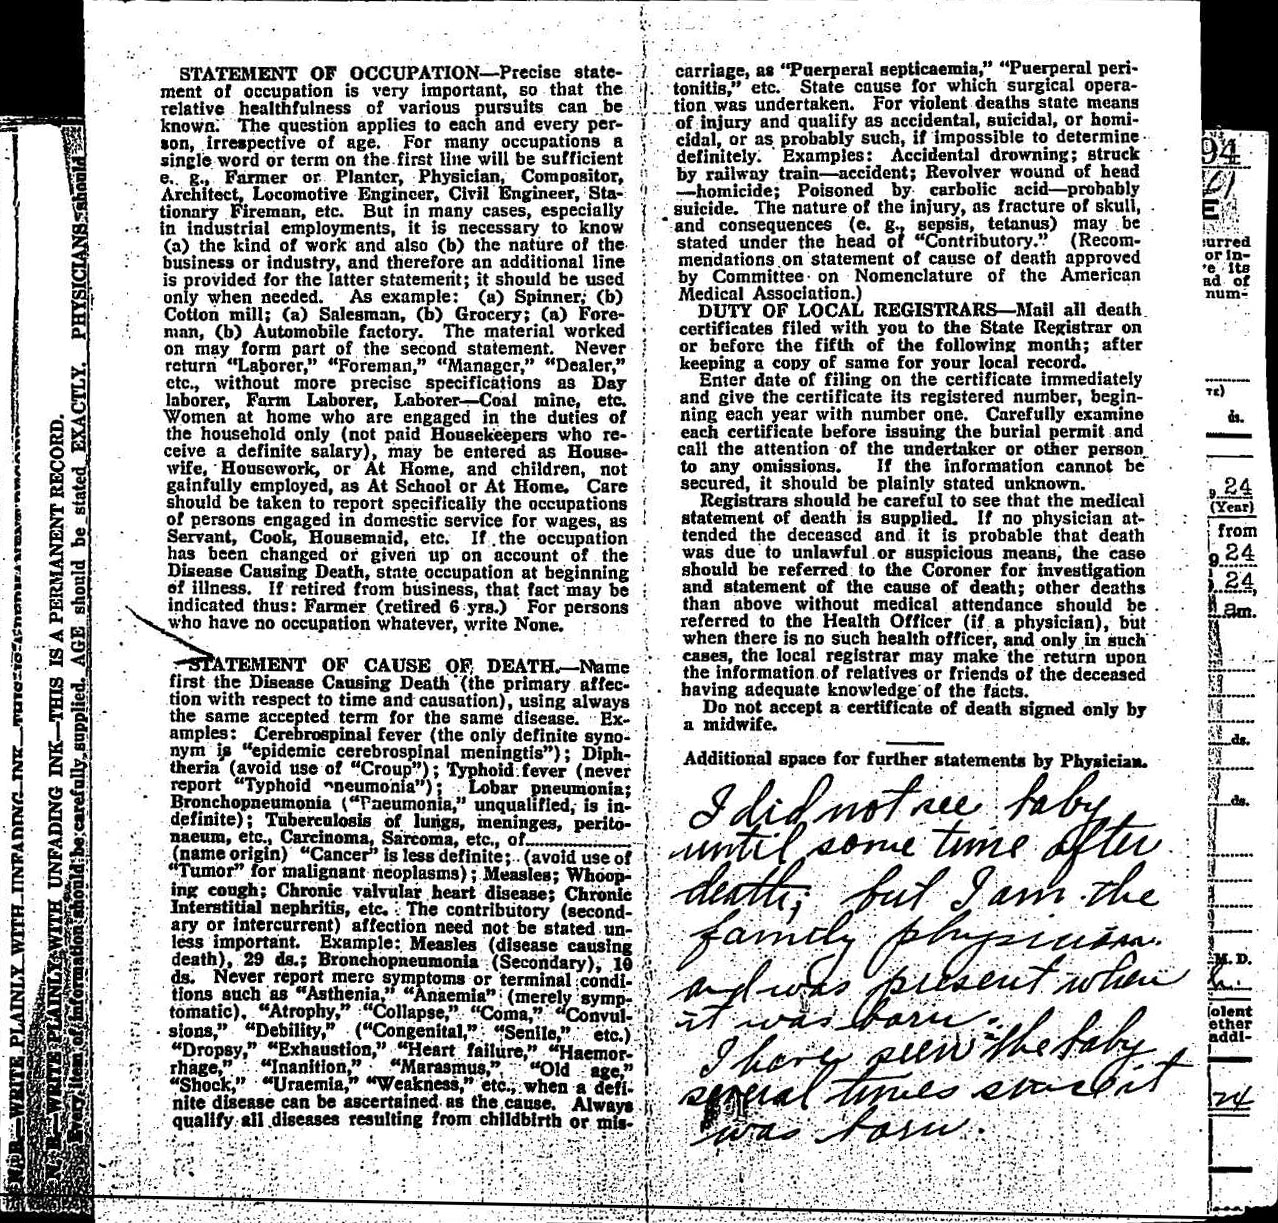 STATEMENT OF OCCUPATION—Precise state-
ment of occupation is very important, so that the
relative healthfulness of various pursuits can be
known. The question applies to each and every per-
son, irrespective of age. For many occupations a
single word or term on the first line will be sufficient
e. g., Farmer or Planter, Physician, Compositor,
Architect, Locomotive Engineer, Civil Engineer, Sta-
tionary Fireman, etc. But in many cases, especially
in industrial employments, it is necessary to know
(a) the kind of work and also (b) the nature of the
business or industry, and therefore an additional line
is provided for the latter statement; it should be used
only when needed. As example: (a) Spinner; (b)
Cotton mill; (a) Salesman, (b) Grocery; (a) Fore-
man, (b) Automobile factory. The material worked
on may form part of the second statement. Never
return "Laborer," "Foreman," "Manager," "Dealer,"
etc., without more precise specifications as Day
laborer, Farm Laborer, Laborer—Coal mine, etc.
Women at home who are engaged in the duties of
the household only (not paid Housekeepers who re-
ceive a definite salary), may be entered as House-
wife, Housework, or At Home, and children, not
gainfully employed, as At School or At Home. Care
should be taken to report specifically the occupations
of persons engaged in domestic service for wages, as
Servant, Cook, Housemaid, etc. If the occupation
has been changed or given up on account of the
Disease Causing Death, state occupation at beginning
of illness. If retired from business, that fact may be
indicated thus: Farmer (retired 6 yrs.) For persons
who have no occupation whatever, write None.
STATEMENT OF CAUSE OF DEATH.—Name
first the Disease Causing Death (the primary affec-
tion with respect to time and causation), using always
the same accepted term for the same disease. Ex-
amples: Cerebrospinal fever (the only definite syno-
nym is "epidemic cerebrospinal meningtis"); Diph-
theria (avoid use of "Croup"); Typhoid fever (never
report "Typhoid pneumonia"); Lobar pneumonia;
Bronchopneumonia ("Pneumonia," unqualified, is in-
definite); Tuberculosis of lungs, meninges, perito-
naeum, etc., Carcinoma, Sarcoma, etc., of
(name origin) "Cancer" is less definite; (avoid use of
"Tumor" for malignant neoplasms); Measles; Whoop-
ing cough; Chronic valvular heart disease; Chronic
Interstitial nephritis, etc. The contributory (second-
ary or intercurrent) affection need not be stated un-
less important. Example: Measles (disease causing
death), 29 ds.; Bronchopneumonia (Secondary), 10
ds. Never report mere symptoms or terminal condi-
tions such as "Asthenia," "Anaemia" (merely symp-
tomatic), "Atrophy," "Collapse," "Coma," "Convul-
sions," "Debility," ("Congenital," "Senile," etc.)
"Dropsy," "Exhaustion," "Heart failure," "Haemor-
rhage," "Inanition," "Marasmus," "Old age,"
"Shock," "Uraemia," "Weakness," etc., when a defi-
nite disease can be ascertained as the cause. Always
qualify all diseases resulting from childbirth or mis-
carriage, as "Puerperal septicaemia," "Puerperal peri-
tonitis," etc. State cause for which surgical opera-
tion was undertaken. For violent deaths state means
of injury and qualify as accidental, suicidal, or homi-
cidal, or as probably such, if impossible to determine
definitely. Examples: Accidental drowning; struck
by railway train—accident; Revolver wound of head
—homicide; Poisoned by carbolic acid—probably
suicide. The nature of the injury, as fracture of skull,
and consequences (e. g., sepsis, tetanus) may be
stated under the head of "Contributory." (Recom-
mendations on statement of cause of death approved
by Committee on Nomenclature of the American
Medical Association.)
DUTY OF LOCAL REGISTRARS—Mail all death
certificates filed with you to the State Registrar on
or before the fifth of the following month; after
keeping a copy of same for your local record.
Enter date of filing on the certificate immediately
and give the certificate its registered number, begin-
ning each year with number one. Carefully examine
each certificate before issuing the burial permit and
call the attention of the undertaker or other person
to any omissions. If the information cannot be
secured, it should be plainly stated unknown.
Registrars should be careful to see that the medical
statement of death is supplied. If no physician at-
tended the deceased and it is probable that death
was due to unlawful or suspicious means, the case
should be referred to the Coroner for investigation
and statement of the cause of death; other deaths
than above without medical attendance should be
referred to the Health Officer (if a physician), but
when there is no such health officer, and only in such
cases, the local registrar may make the return upon
the information of relatives or friends of the deceased
having adequate knowledge of the facts.
Do not accept a certificate of death signed only by
a midwife.
Additional space for further statements by Physician.
I did not see baby
until some time after
death; but I am the
family physician
and was present when
it was born.
I have seen the baby
several times since it
was born.
WRITE PLAINLY WITH UNFADING INK—THIS IS A PERMANENT RECORD.
Every item of information should be carefully supplied. AGE should be stated EXACTLY. PHYSICIANS should
94
urred
or in-
its
ad of
num-
ds.
24
(Year)
from
24
24,
am.
ds.
ds.
M. D.
iolent
ether
addi-
24